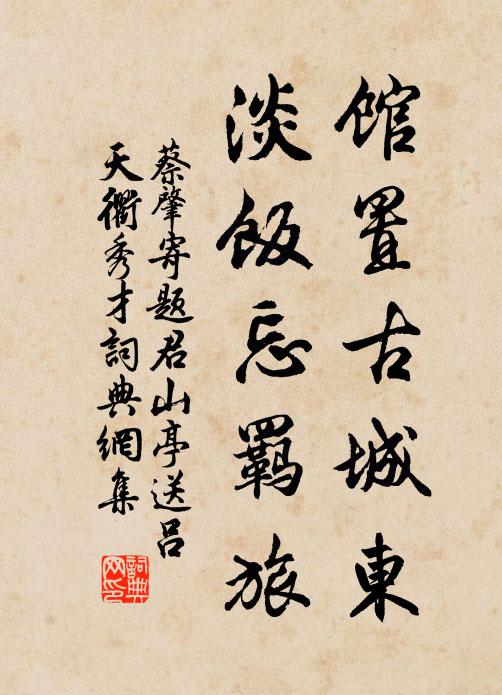 館置古城東
淡飯忘羈旅
蔡肇寄題君山亭送吕
天衢秀才詞典網集
詞典
网印